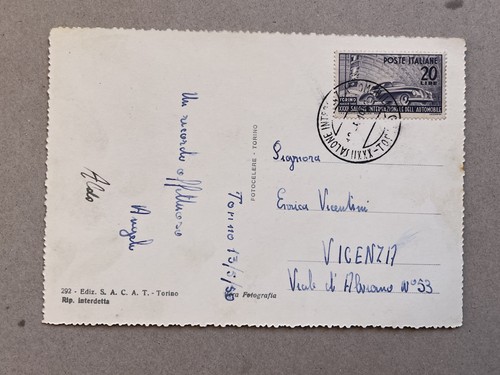 POSTE ITALIANE
20
LIRE
TORINO
XXXII SALONE INTERNAZIONALE DELL'AUTOMOBILE
XXXII SALONE
TORINO
Signora
Enrica Vicentini
VICENZA
Viale d'
n° 53
FOTOCELERE - TORINO
Un ricordo affettuoso
Angela
Aldo
Torino 13/5/50
292 - Ediz. S. A. C. A. T. - Torino
Rip. interdetta
Fotografia